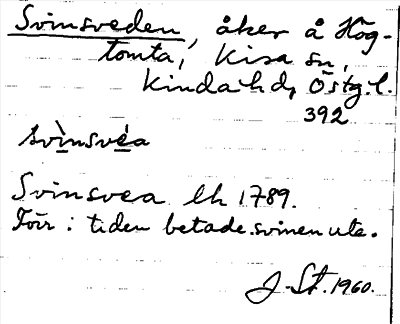 Svinsveden, åker å Hög-
tomta, Kisa sn,
Kinda hd, Östg. l.
392
svìnsvéa
Svinsvea lh 1789.
Förr i tiden betade svinen ute.
J. St. 1960.